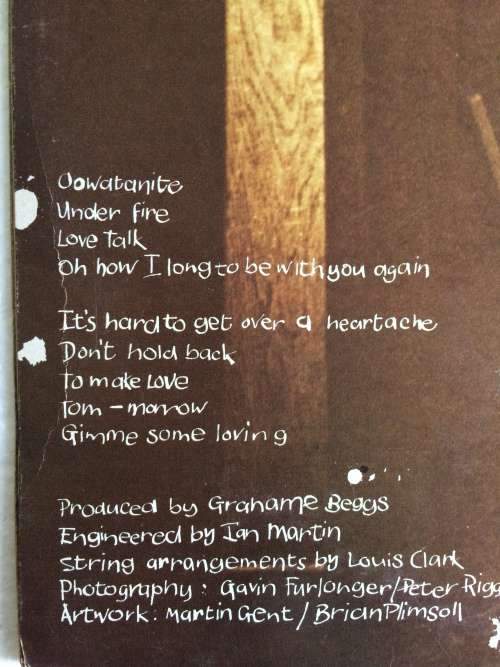 Oowatanite
Under fire
Love Talk
Oh how I long to be with you again
It's hard to get over a heartache
Don't hold back
To make love
Tom-morrow
Gimme some loving
Produced by Grahame Beggs
Engineered by Ian Martin
String arrangements by Louis Clark
Photography: Gavin Furlonger/Peter Rigg
Artwork: Martin Gent / Brian Plimsoll